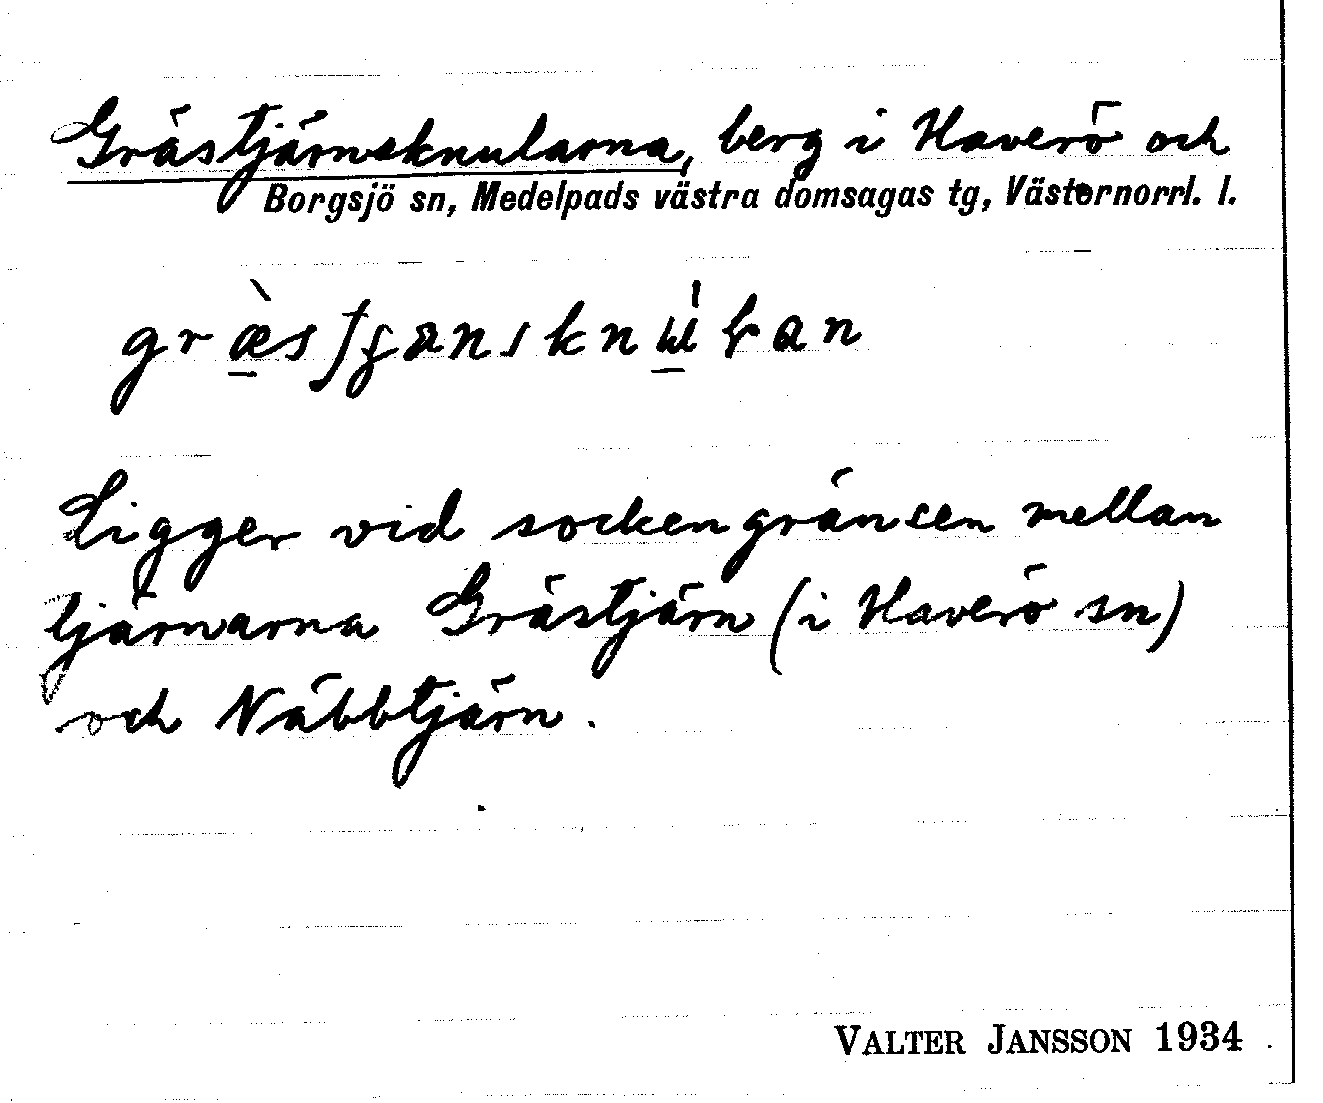 Grästjärnsknularna, berg i Haverö och
Borgsjö sn, Medelpads västra domsagas tg, Västernorrl. l.
Ligger vid sockengränsen mellan
tjärnarna Grästjärn (i Haverö sn)
och Näbbtjärn.
VALTER JANSSON 1934